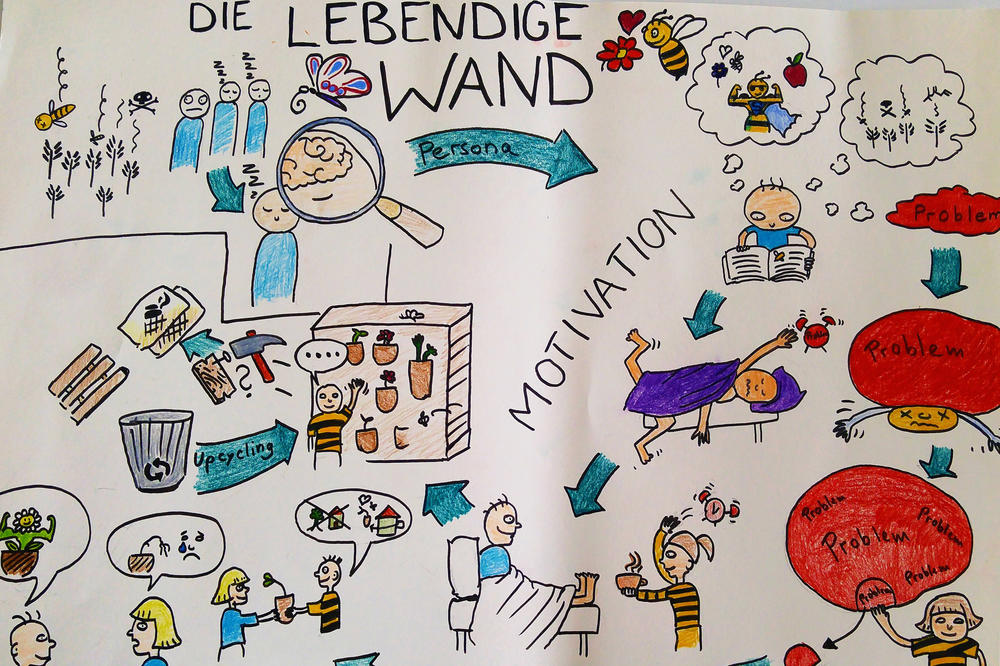 DIE LEBENDIGE
WAND
z z z
z z z
z z z
Persona
Problem
MOTIVATION
Problem
?
....
Upcycling
Problem
Problem
Problem
Problem
Problem